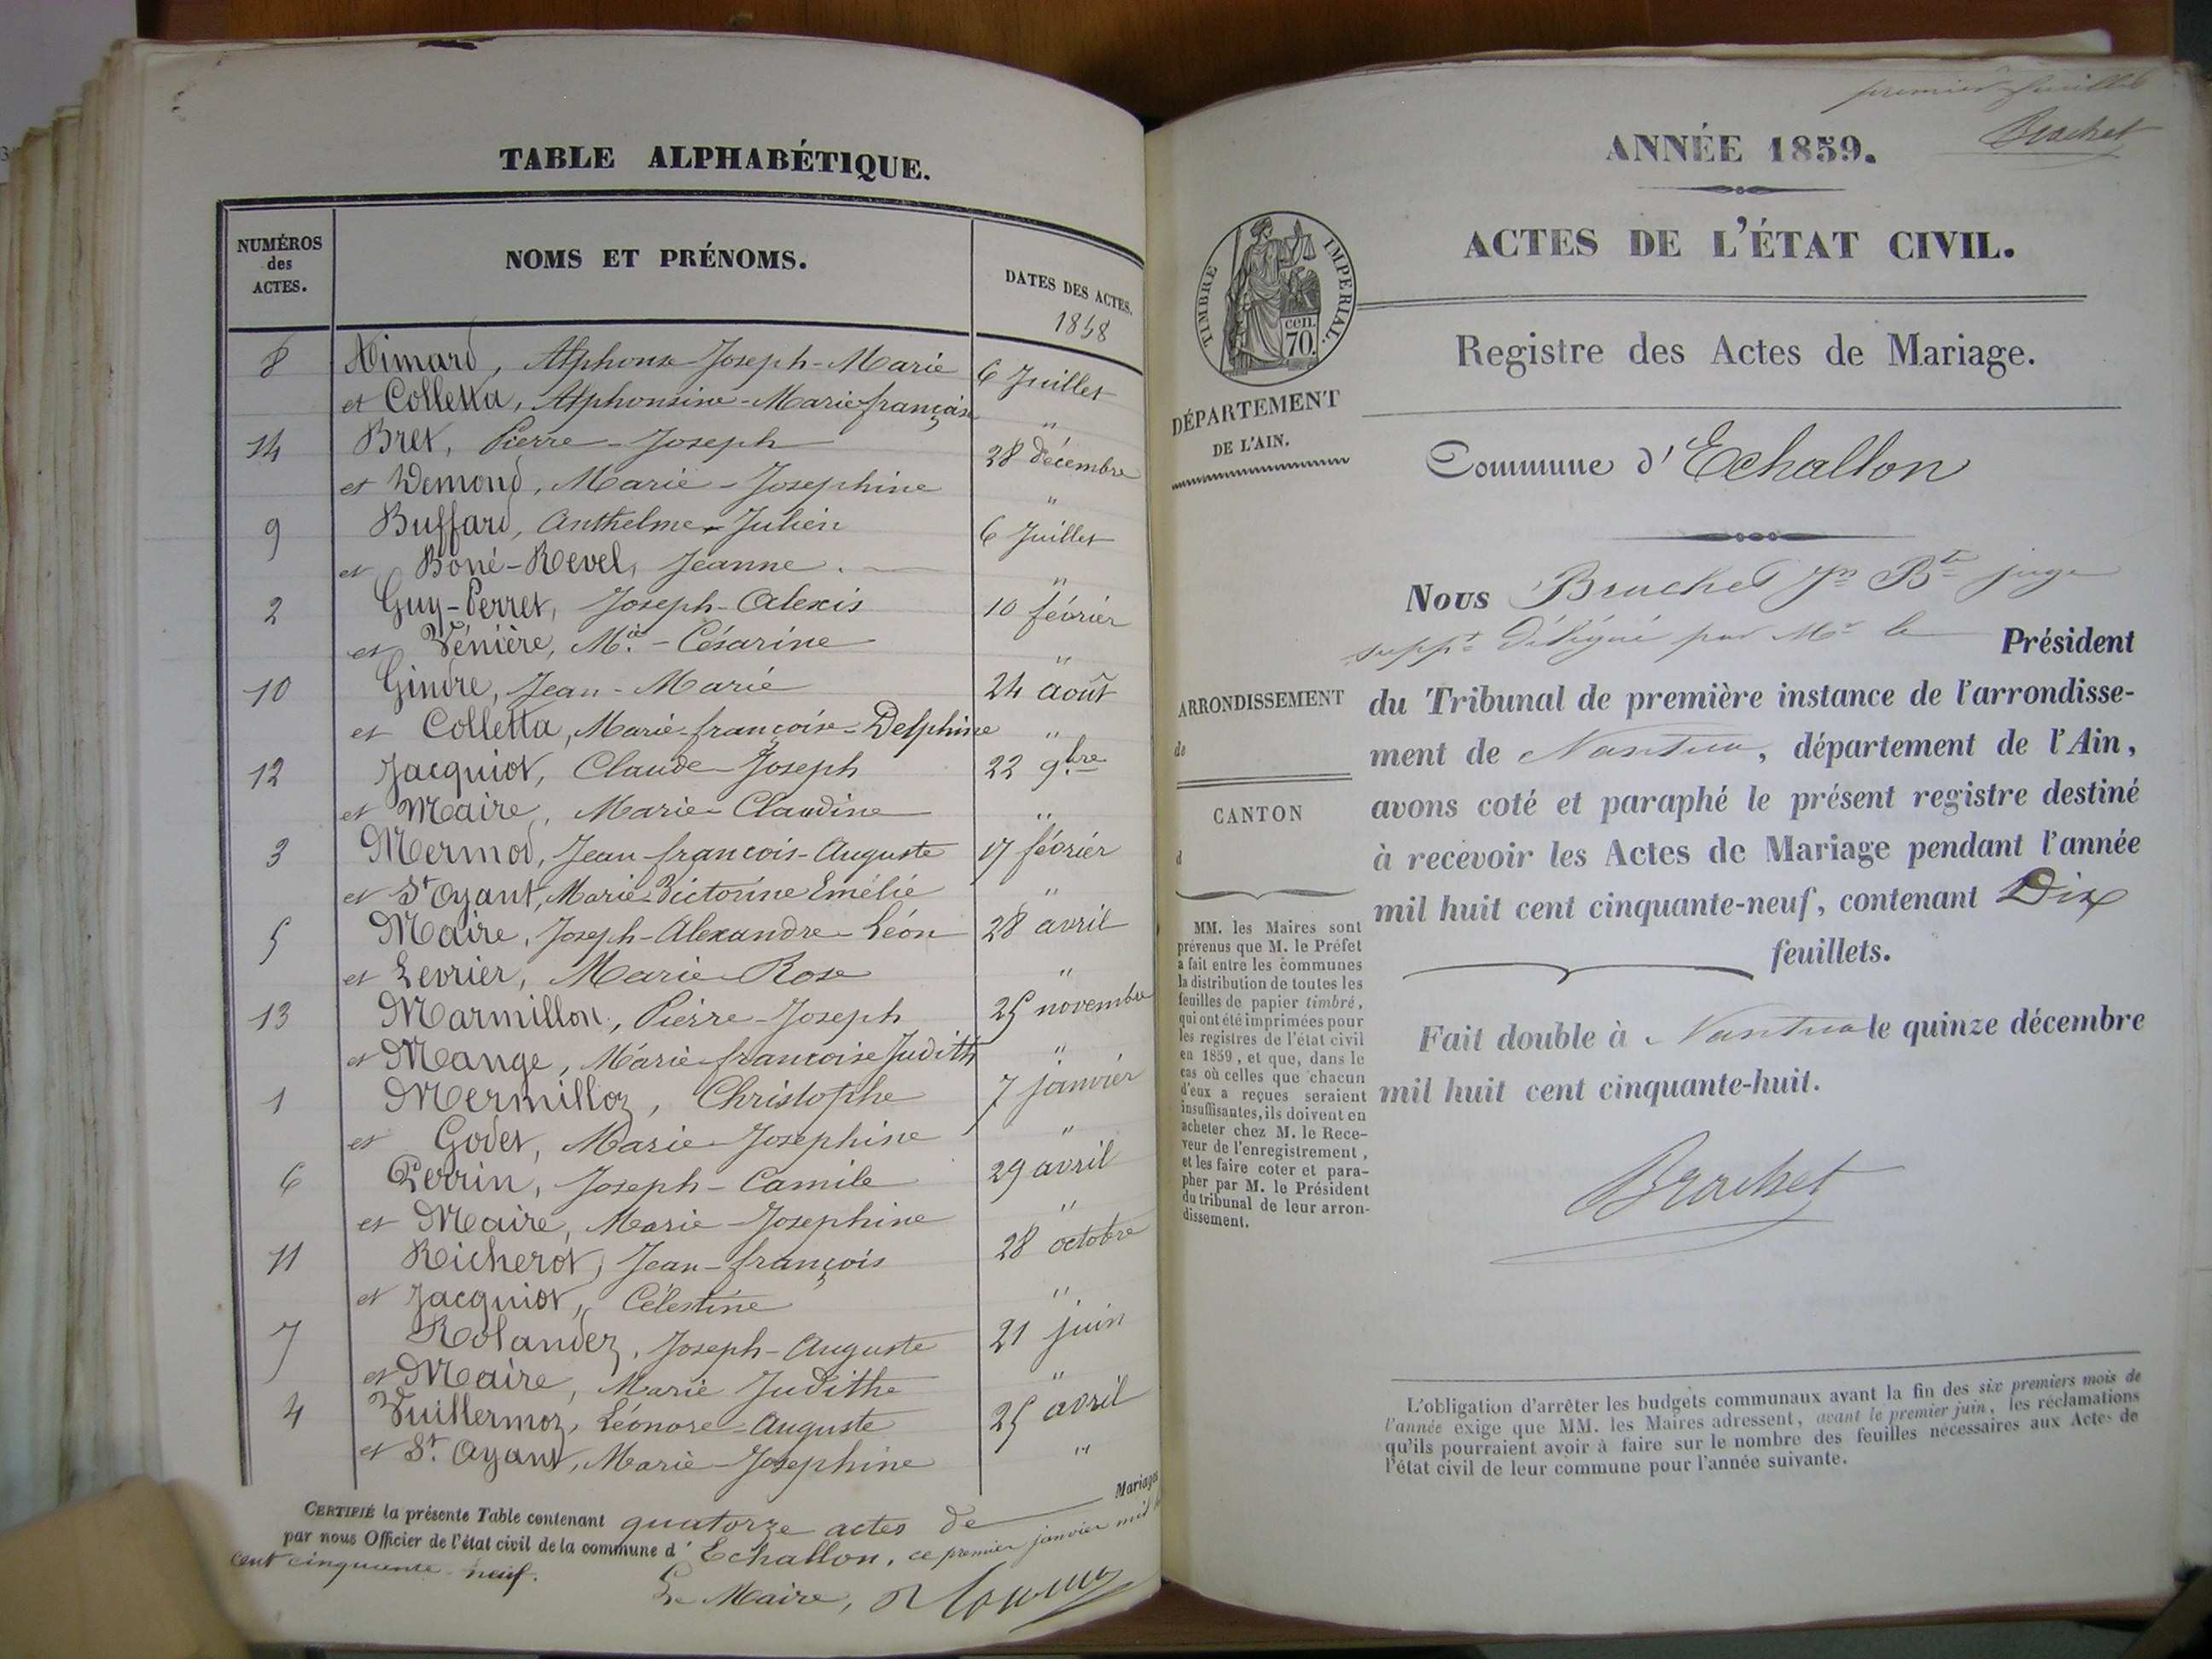 TABLE ALPHABÉTIQUE.
NUMÉROS des ACTES.
NOMS ET PRÉNOMS.
DATES DES ACTES.
1858
8 Aimard, Alphonse-Joseph-Marie 6 Juillet
et Colletta, Alphonsine-Marie françoise "
14 Bret, Pierre-Joseph 28 décembre
et Demond, Marie-Josephine "
9 Buffard, Anthelme-Julien 6 Juillet
et Boné-Revel, Jeanne. "
2 Guy-Perret, Joseph-Alexis 10 février
et Vénière, Mie.-Césarine "
10 Gindre, Jean-Marie 24 août
et Colletta, Marie-françoise-Delphine "
12 Jacquiot, Claude-Joseph 22 9.bre
et Maire, Marie-Claudine "
3 Mermod, Jean françois-Auguste 17 février
et St Oyant, Marie-Victorine Emélie "
5 Maire, Joseph-Alexandre-Léon 28 avril
et Levrier, Marie-Rose "
13 Marmillon, Pierre-Joseph 25 novembre
et Mange, Marie françoise Judith "
1 Mermilloz, Christophe 7 janvier
et Godet, Marie-Josephine "
6 Perrin, Joseph-Camile 29 avril
et Maire, Marie-Josephine "
11 Richerot, Jean-françois 28 octobre
et Jacquiot, Célestine "
7 Rolandez, Joseph-Auguste 21 juin
et Maire, Marie Judithe "
4 Vuillermoz, Léonore-Auguste 25 avril
et St. Oyant, Marie-Josephine "
CERTIFIÉ la présente Table contenant quatorze actes de Mariages
par nous Officier de l'état civil de la commune d'Echallon, ce premier janvier mil
cent cinquante-neuf.
Le Maire,
premier feuillet
Brachet
ANNÉE 1859.
ACTES DE L'ÉTAT CIVIL.
TIMBRE IMPERIAL.
cen.
70.
Registre des Actes de Mariage.
DÉPARTEMENT
DE L'AIN.
Commune d'Echallon
Nous Bruchet Jn Bte juge
suppt délégué par Mr le Président
ARRONDISSEMENT
de
du Tribunal de première instance de l'arrondisse-
ment de Nantua, département de l'Ain,
avons coté et paraphé le présent registre destiné
à recevoir les Actes de Mariage pendant l'année
mil huit cent cinquante-neuf, contenant Dix
feuillets.
CANTON
d
MM. les Maires sont
prévenus que M. le Préfet
a fait entre les communes
la distribution de toutes les
feuilles de papier timbré,
qui ont été imprimées pour
les registres de l'état civil
en 1859, et que, dans le
cas où celles que chacun
d'eux a reçues seraient
insuffisantes, ils doivent en
acheter chez M. le Rece-
veur de l'enregistrement,
et les faire coter et para-
pher par M. le Président
du tribunal de leur arron-
dissement.
Fait double à Nantua le quinze décembre
mil huit cent cinquante-huit.
Brachet
L'obligation d'arrêter les budgets communaux avant la fin des six premiers mois de
l'année exige que MM. les Maires adressent, avant le premier juin, les réclamations
qu'ils pourraient avoir à faire sur le nombre des feuilles nécessaires aux Actes de
l'état civil de leur commune pour l'année suivante.